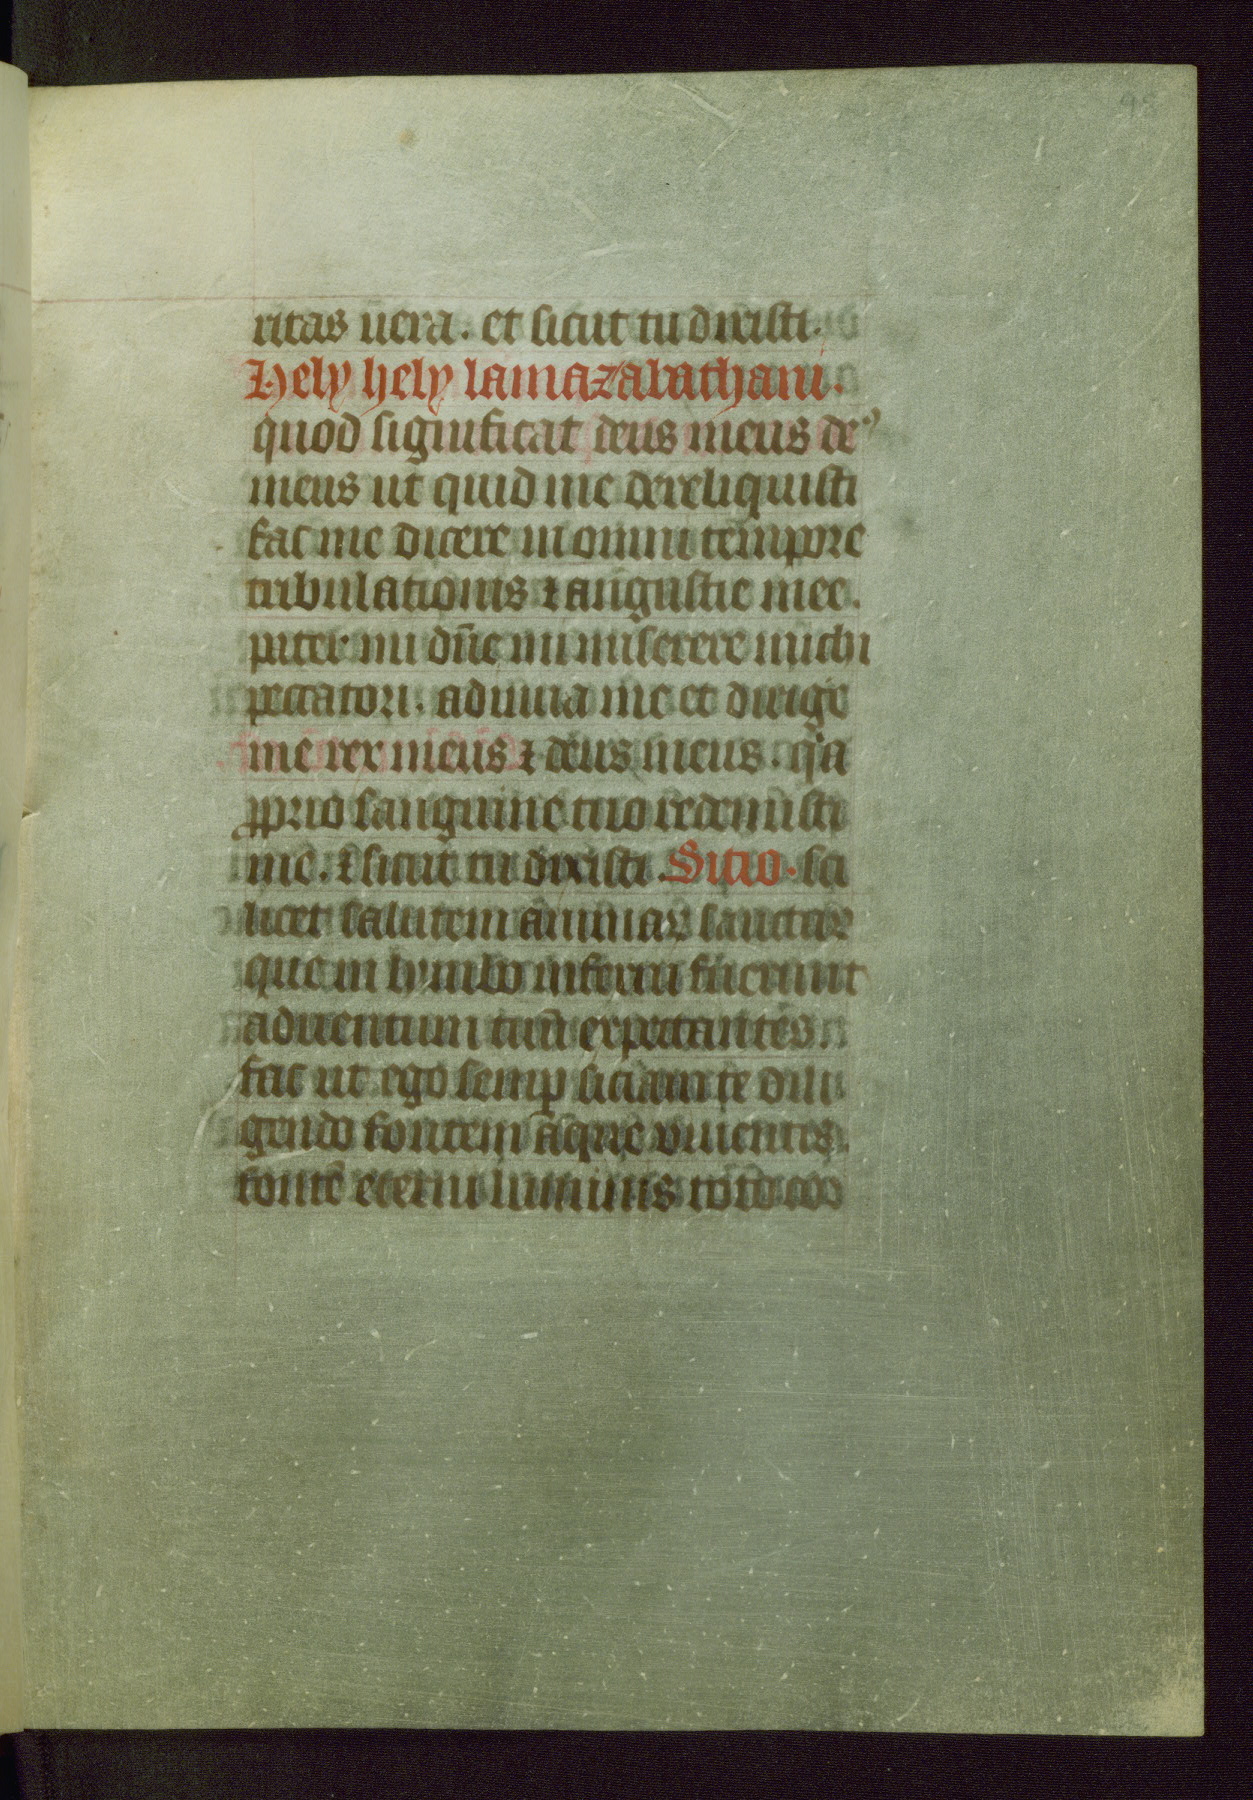 98
ritas uera. et sicut tu dixisti.
Hely hely lamazabathani.
quod significat deus meus deꝰ
meus ut quid me dereliquisti
fac me dicere in omni tempore
tribulationis ⁊ angustie mee.
pater mi dñe mi miserere michi
peccatori. adiuua me et dirige
me rex meus ⁊ deus meus. qͥa
ꝓprio sanguine tuo redemisti
me. ⁊ sicut tu dixisti. Sitio. sci
licet salutem animaꝝ sanctaꝝ
que in lymbo inferni fuerunt
aduentum tuū expectantes.
fac ut ego semꝑ sitiam te dili
gendo fontem aque viuentes.
fontē eterni luminis toto coo